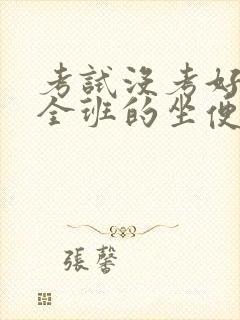 考試沒考好
全班的坐便
張馨